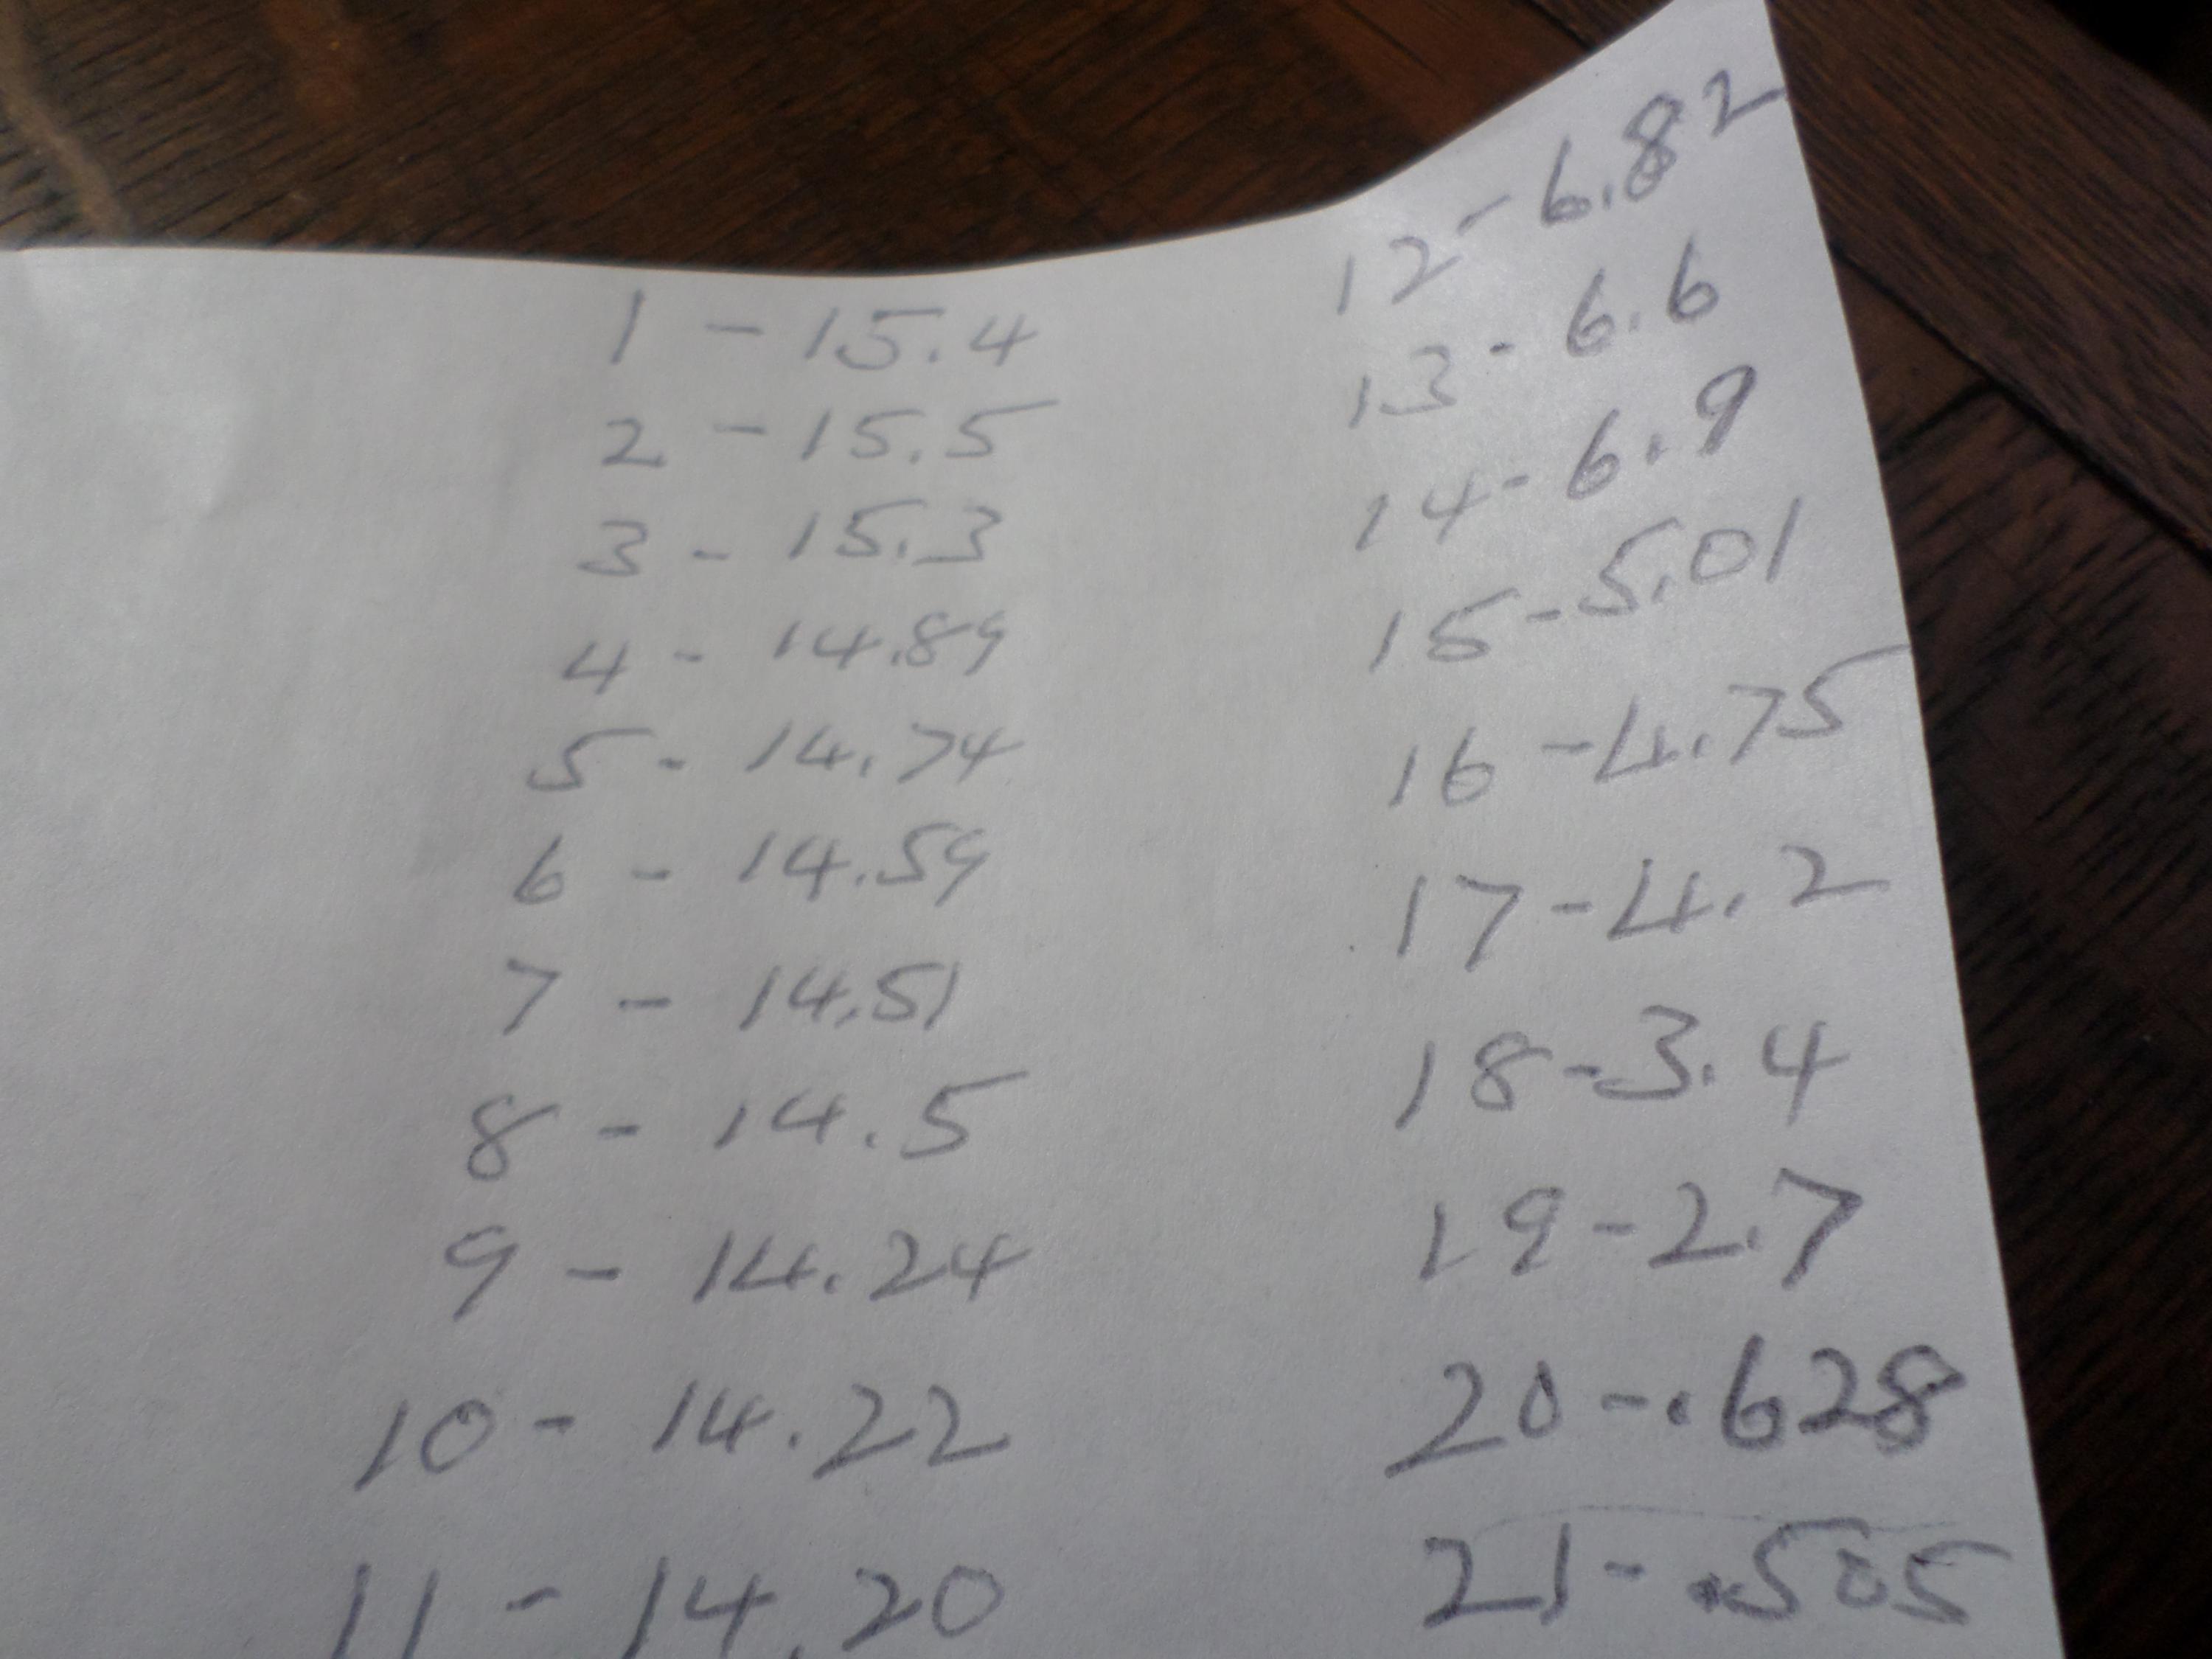 1 - 15.4
2 - 15.5
3 - 15.3
4 - 14.89
5 - 14.74
6 - 14.59
7 - 14.51
8 - 14.5
9 - 14.24
10 - 14.22
11 - 14.20
12 - 6.82
13 - 6.6
14 - 6.9
15 - 5.01
16 - 4.75
17 - 4.2
18 - 3.4
19 - 2.7
20 - .628
21 - .505